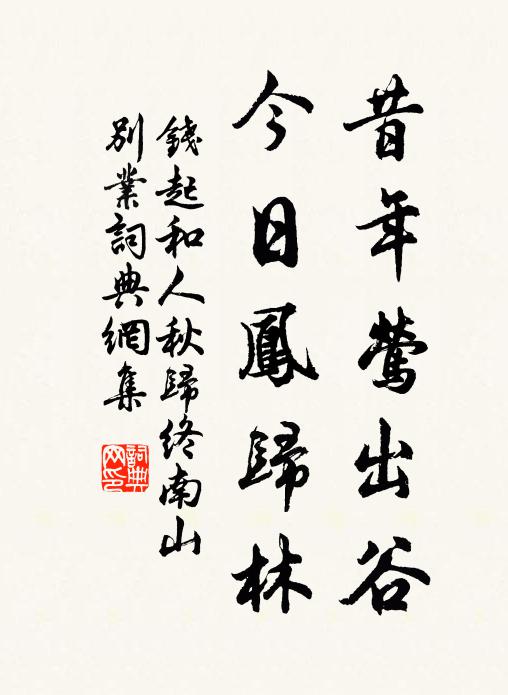 昔年鶯出谷
今日鳳歸林
錢起和人秋歸終南山
別業詞典網集
詞典
网印